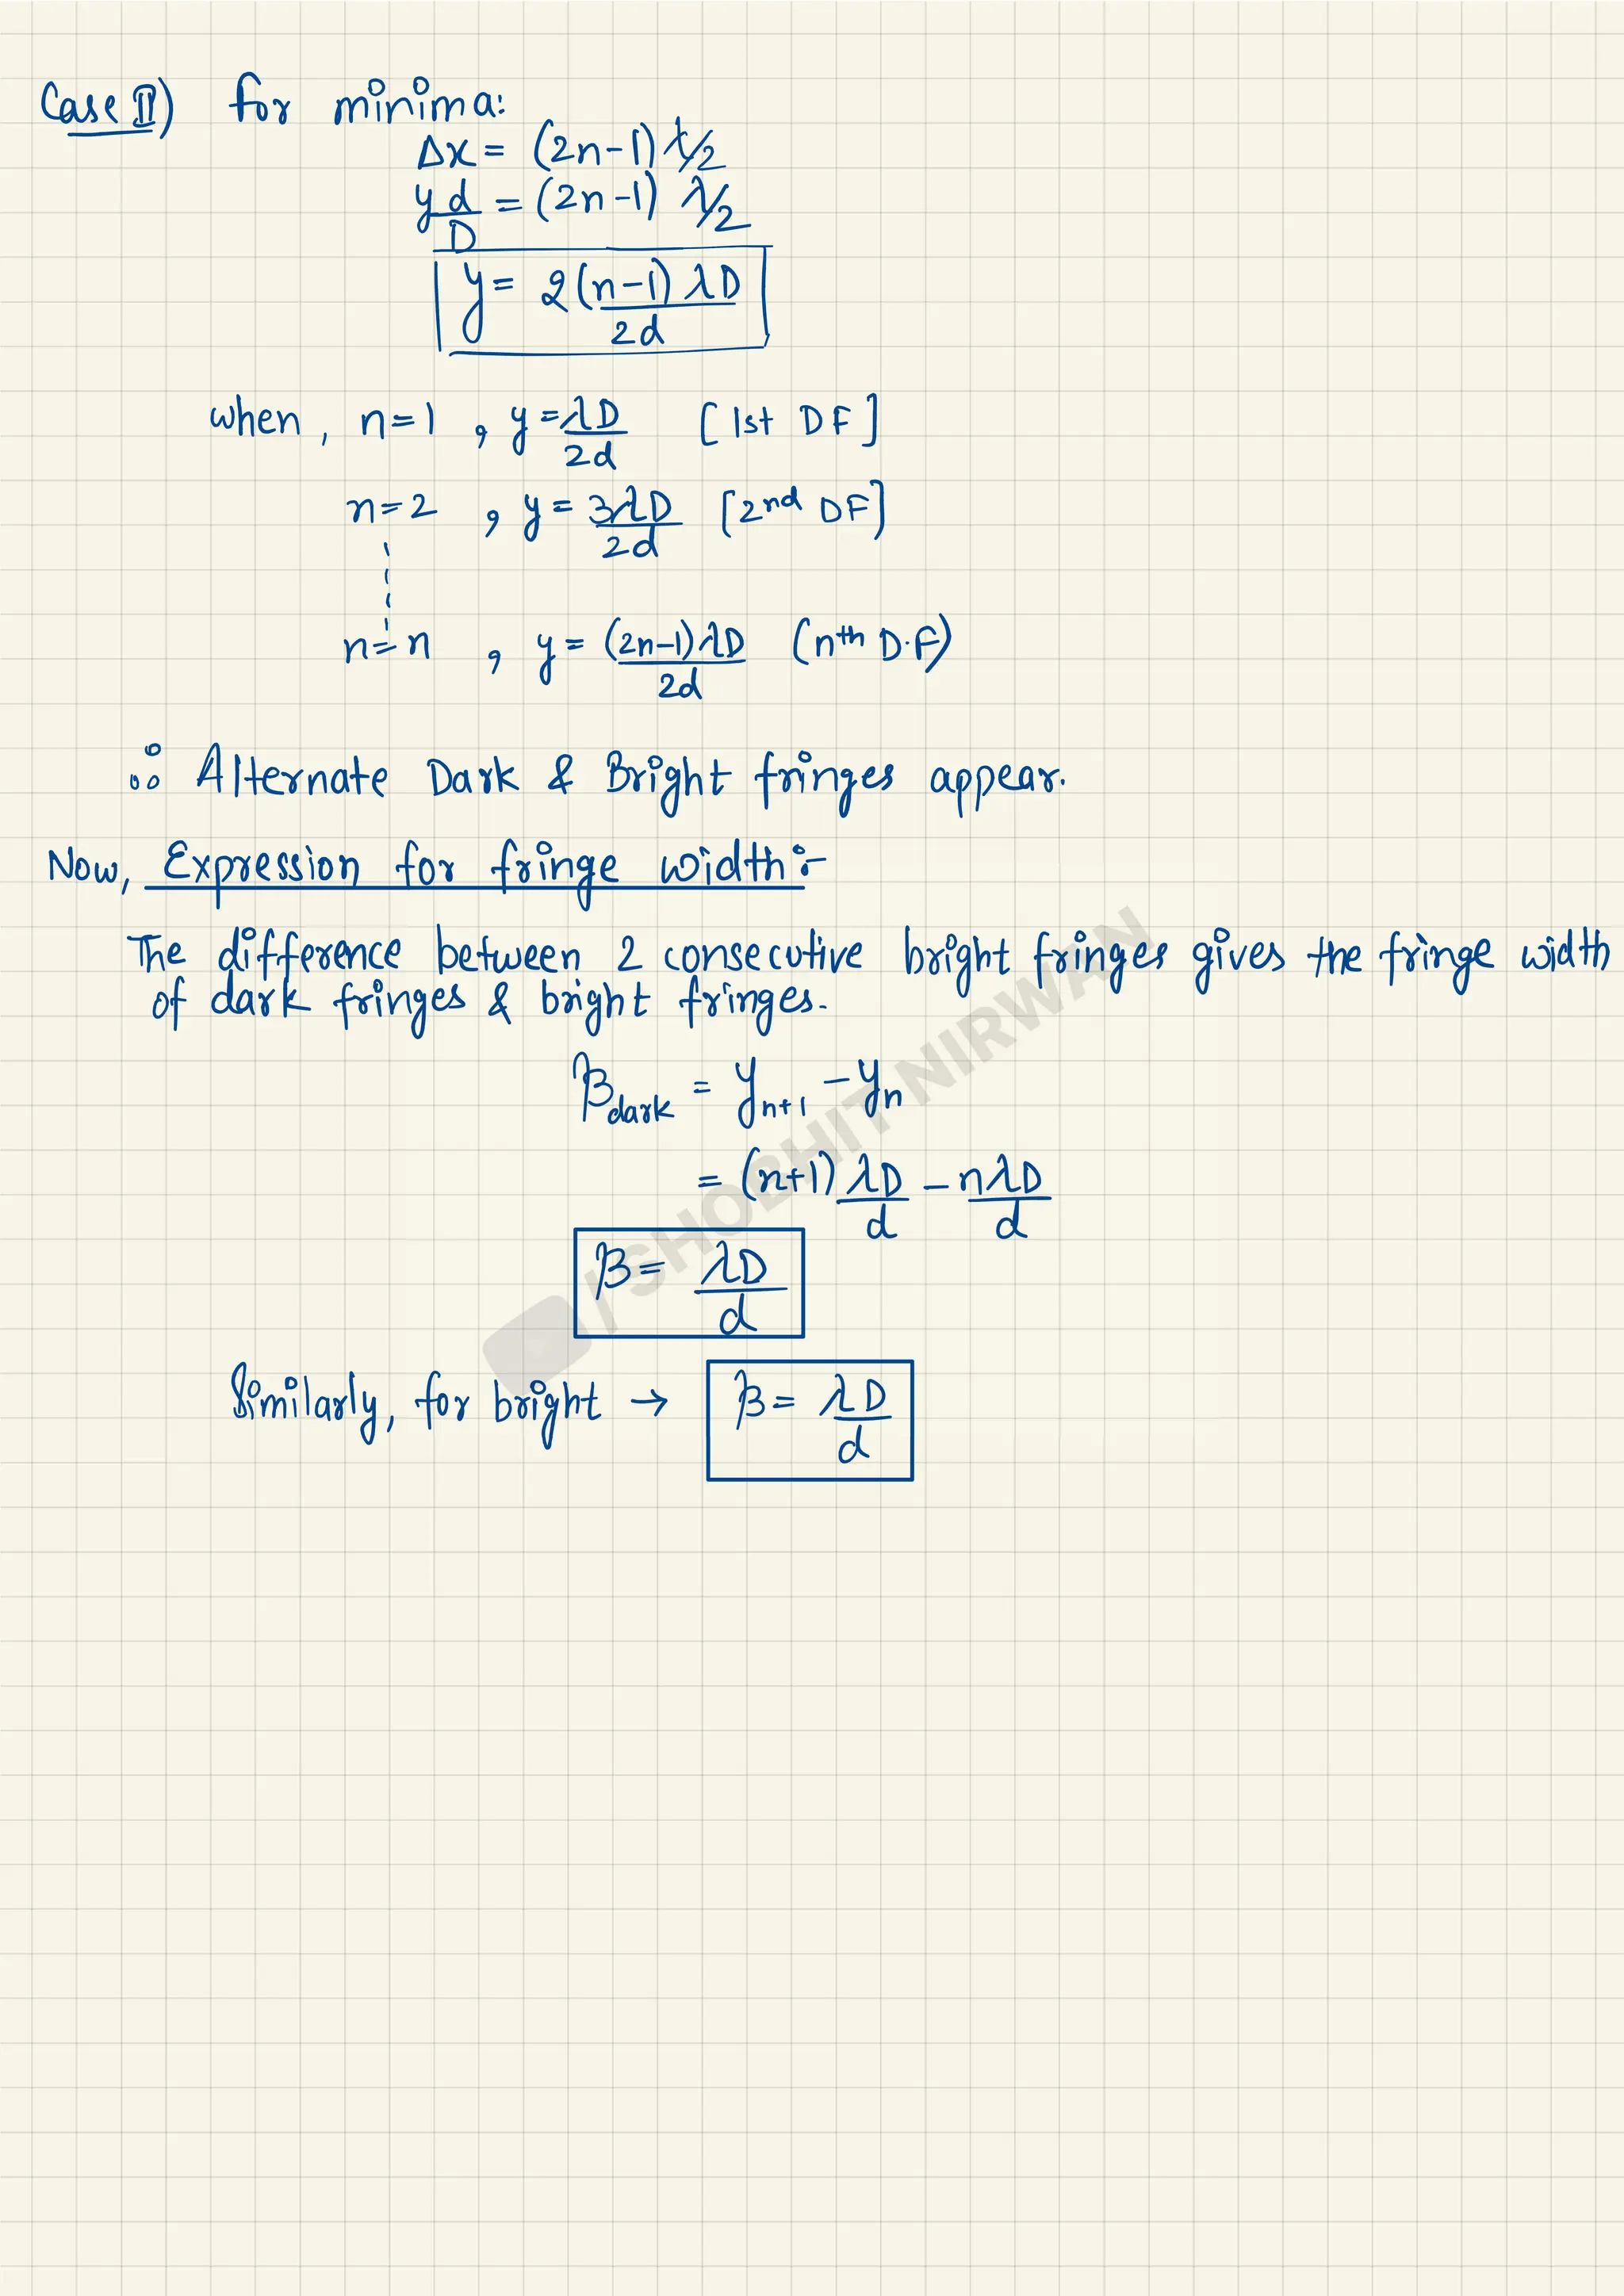 Case II) for minima:
Δx = (2n-1) λ/2
y d/D = (2n-1) λ/2
y = 2(n-1) λD/2d
when, n=1 , y = λD/2d [1st DF]
n=2 , y = 3λD/2d [2nd DF]
n=n , y = (2n-1)λD/2d (nth D.F)
∴ Alternate Dark & Bright fringes appear.
Now, Expression for fringe width:-
The difference between 2 consecutive bright fringes gives the fringe width
of dark fringes & bright fringes.
βdark = yn+1 - yn
= (n+1) λD/d - nλD/d
β = λD/d
Similarly, for bright → β = λD/d
/ SHOBHIT NIRWAN